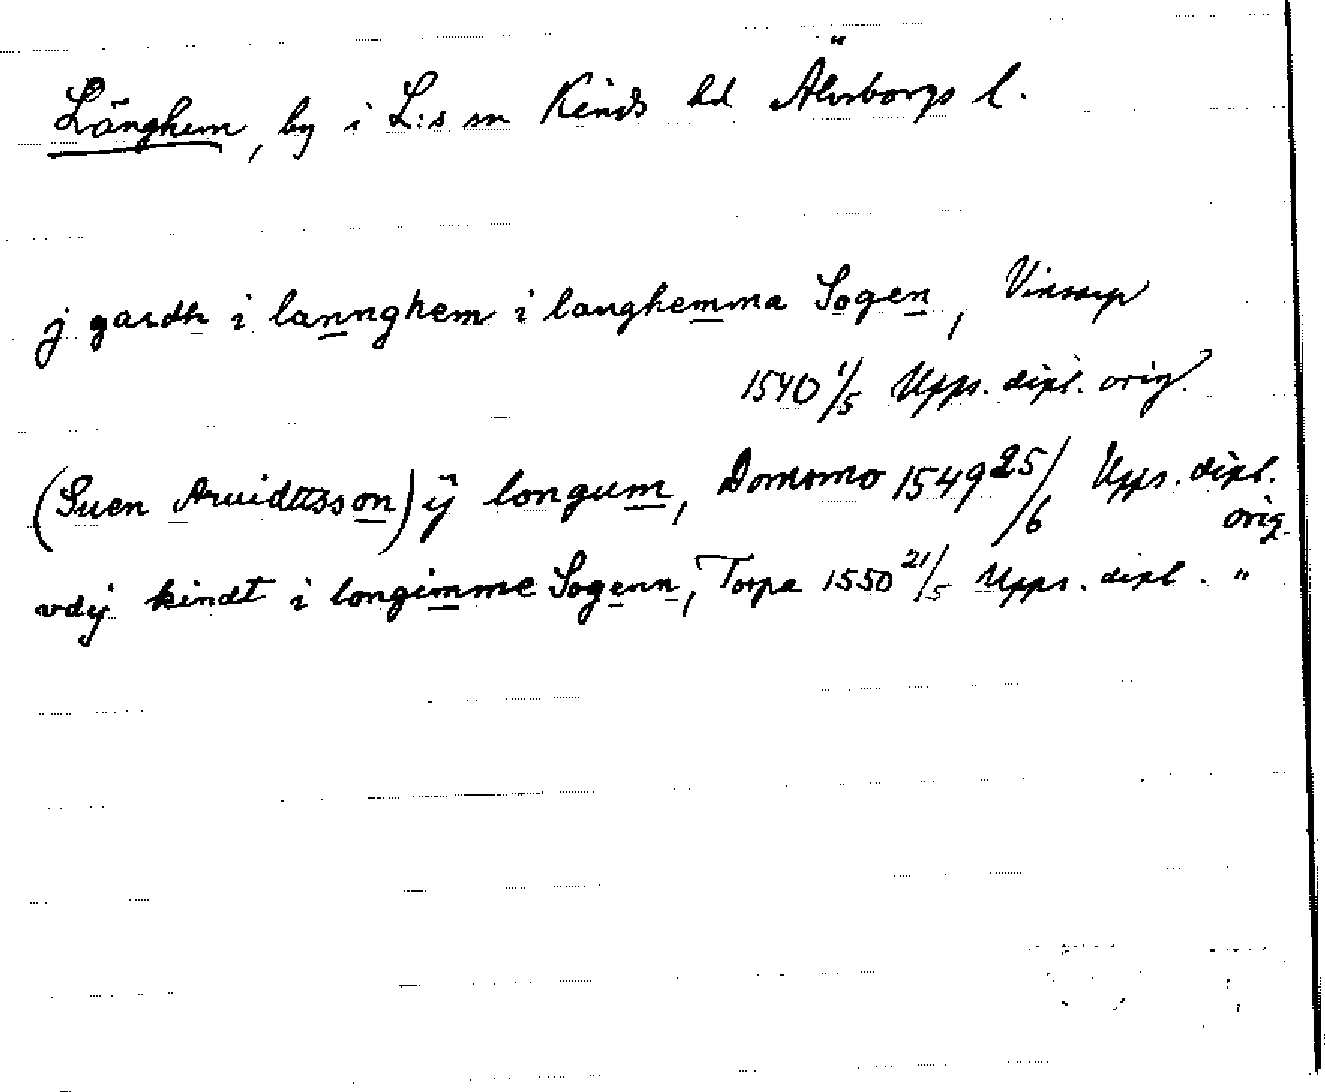 Länghem, by i L:s sn Kinds hd Älvsborgs l.
j gardh i lannghem i langhemma Sogen, Vinsarp
1540 1/5 Upps. dipl. orig.
(Suen Aruidttsson) ÿ longum, Domsmo 1549 25/6 Upps. dipl. orig.
vdÿ kindt i longimme Sogenn, Torpa 1550 21/5 Upps. dipl. "